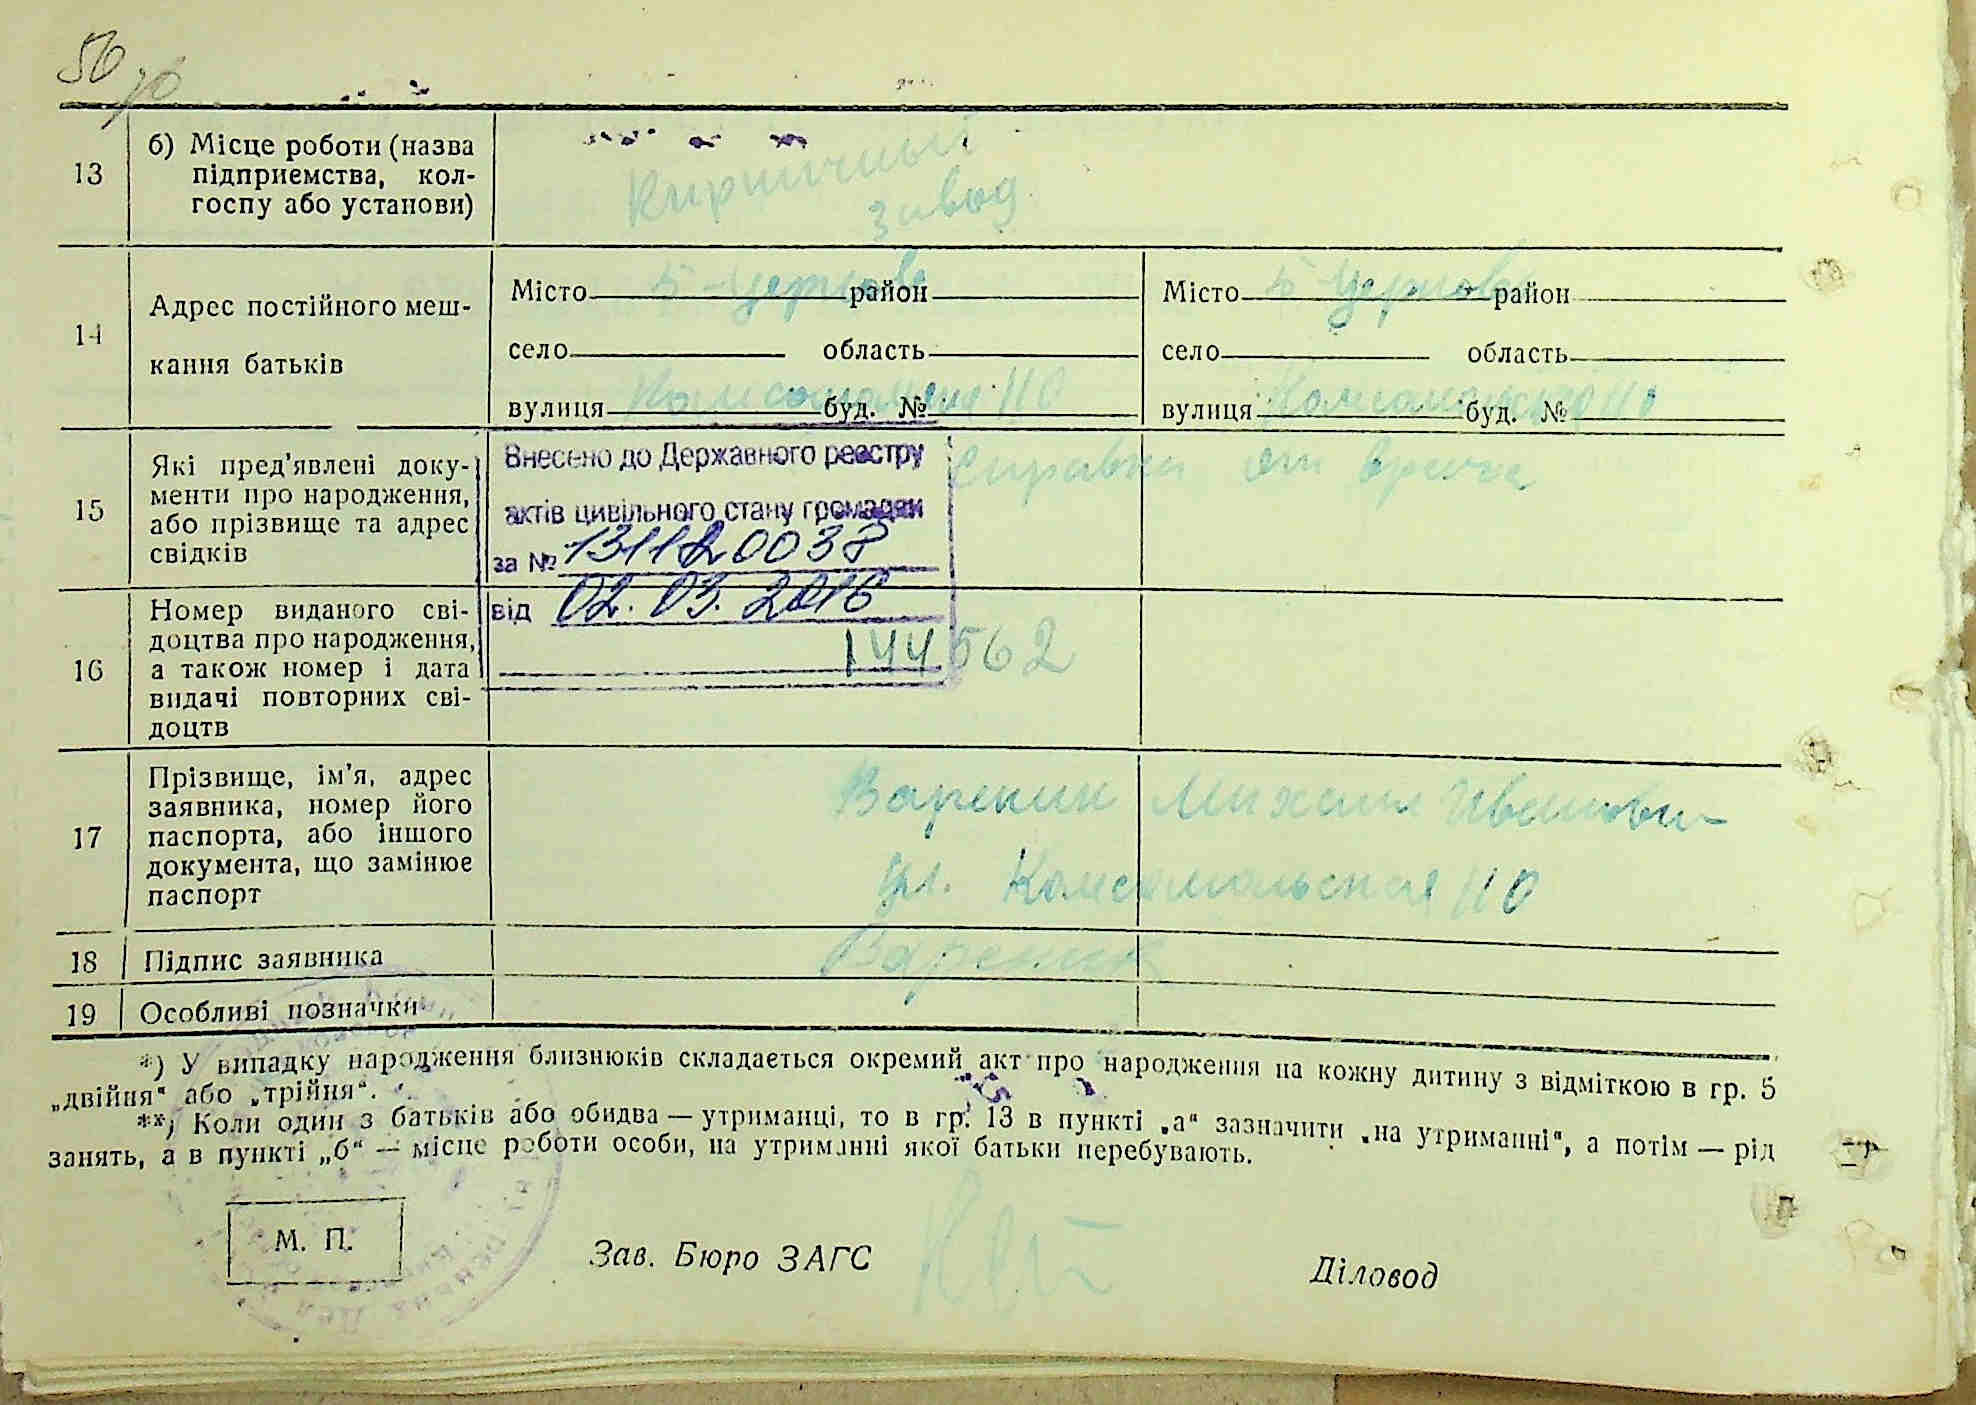 56
13
б) Місце роботи (назва
підприємства, кол-
госпу або установи)
Кирпичный
завод
14
Адрес постійного меш-
кання батьків
Місто Б-Церковь район
село область
вулиця Комсомольская 110 буд. №
Місто Б-Церковь район
село область
вулиця Комсомольская 110 буд. №
15
Які пред'явлені доку-
менти про народження,
або прізвище та адрес
свідків
Справка от врача
Внесено до Державного реєстру
актів цивільного стану громадян
за № 131120038
від 02.03.2016
16
Номер виданого сві-
доцтва про народження,
а також номер і дата
видачі повторних сві-
доцтв
144562
17
Прізвище, ім'я, адрес
заявника, номер його
паспорта, або іншого
документа, що замінює
паспорт
Михаил Иванович
ул. Комсомольская 110
18
Підпис заявника
19
Особливі позначки
*) У випадку народження близнюків складається окремий акт про народження на кожну дитину з відміткою в гр. 5
„двійня“ або „трійня“.
**) Коли один з батьків або обидва — утриманці, то в гр. 13 в пункті „а“ зазначити „на утриманні“, а потім — рід
занять, а в пункті „б“ — місце роботи особи, на утриманні якої батьки перебувають.
М. П.
Зав. Бюро ЗАГС
Діловод